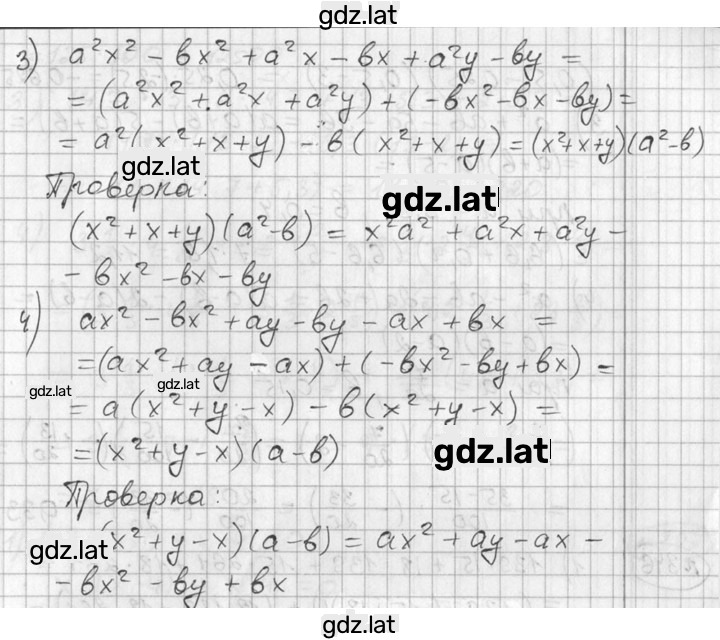 gdz.lat
3) a²x² - вx² + a²x - вx + a²y - вy =
= (a²x² + a²x + a²y) + (-вx² - вx - вy) =
= a²(x² + x + y) - в(x² + x + y) = (x² + x + y)(a² - в)
gdz.lat
Проверка:
gdz.lat
(x² + x + y)(a² - в) = x²a² + a²x + a²y -
- вx² - вx - вy
4) ax² - вx² + ay - вy - ax + вx =
= (ax² + ay - ax) + (-вx² - вy + вx) =
gdz.lat gdz.lat
= a(x² + y - x) - в(x² + y - x) =
= (x² + y - x)(a - в)
gdz.lat
Проверка:
(x² + y - x)(a - в) = ax² + ay - ax -
gdz.lat
- вx² - вy + вx
gdz.lat